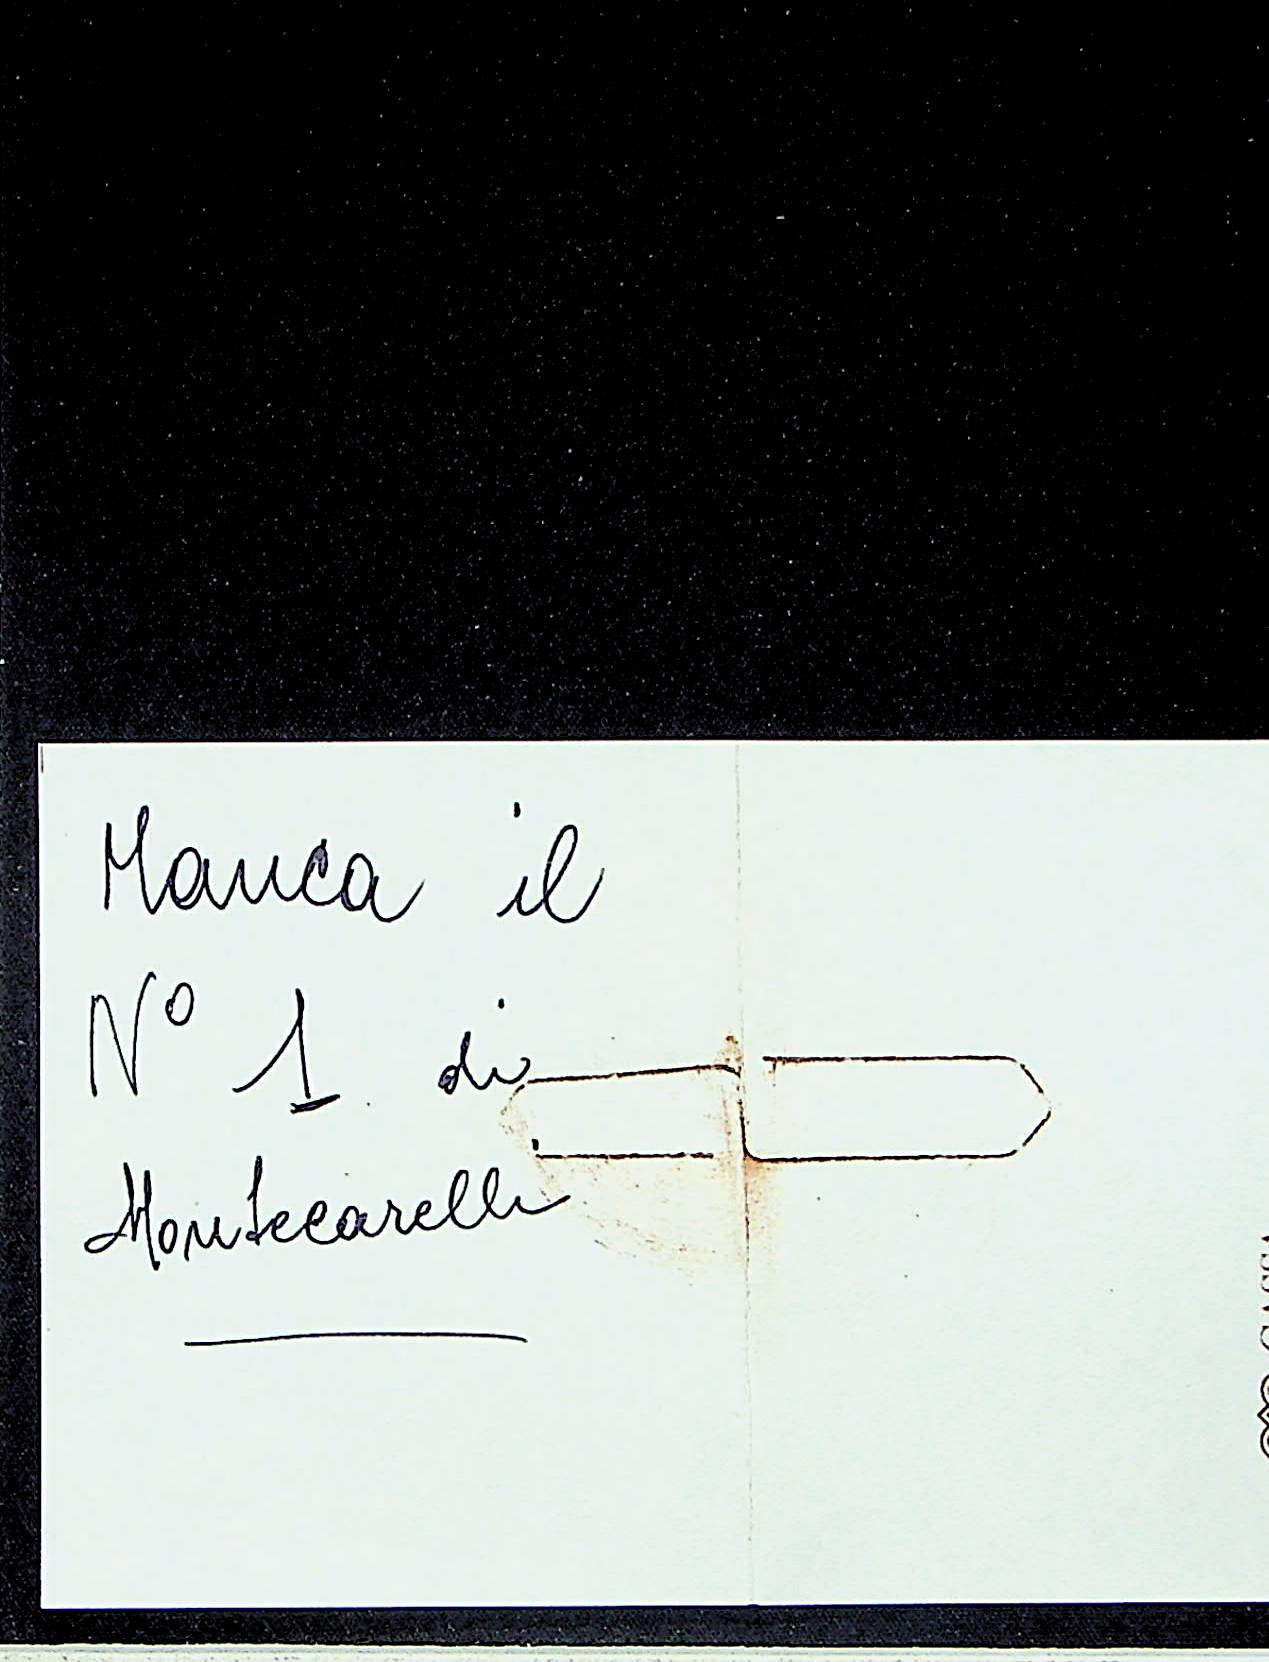 Manca il
N° 1 di
Montecarelli